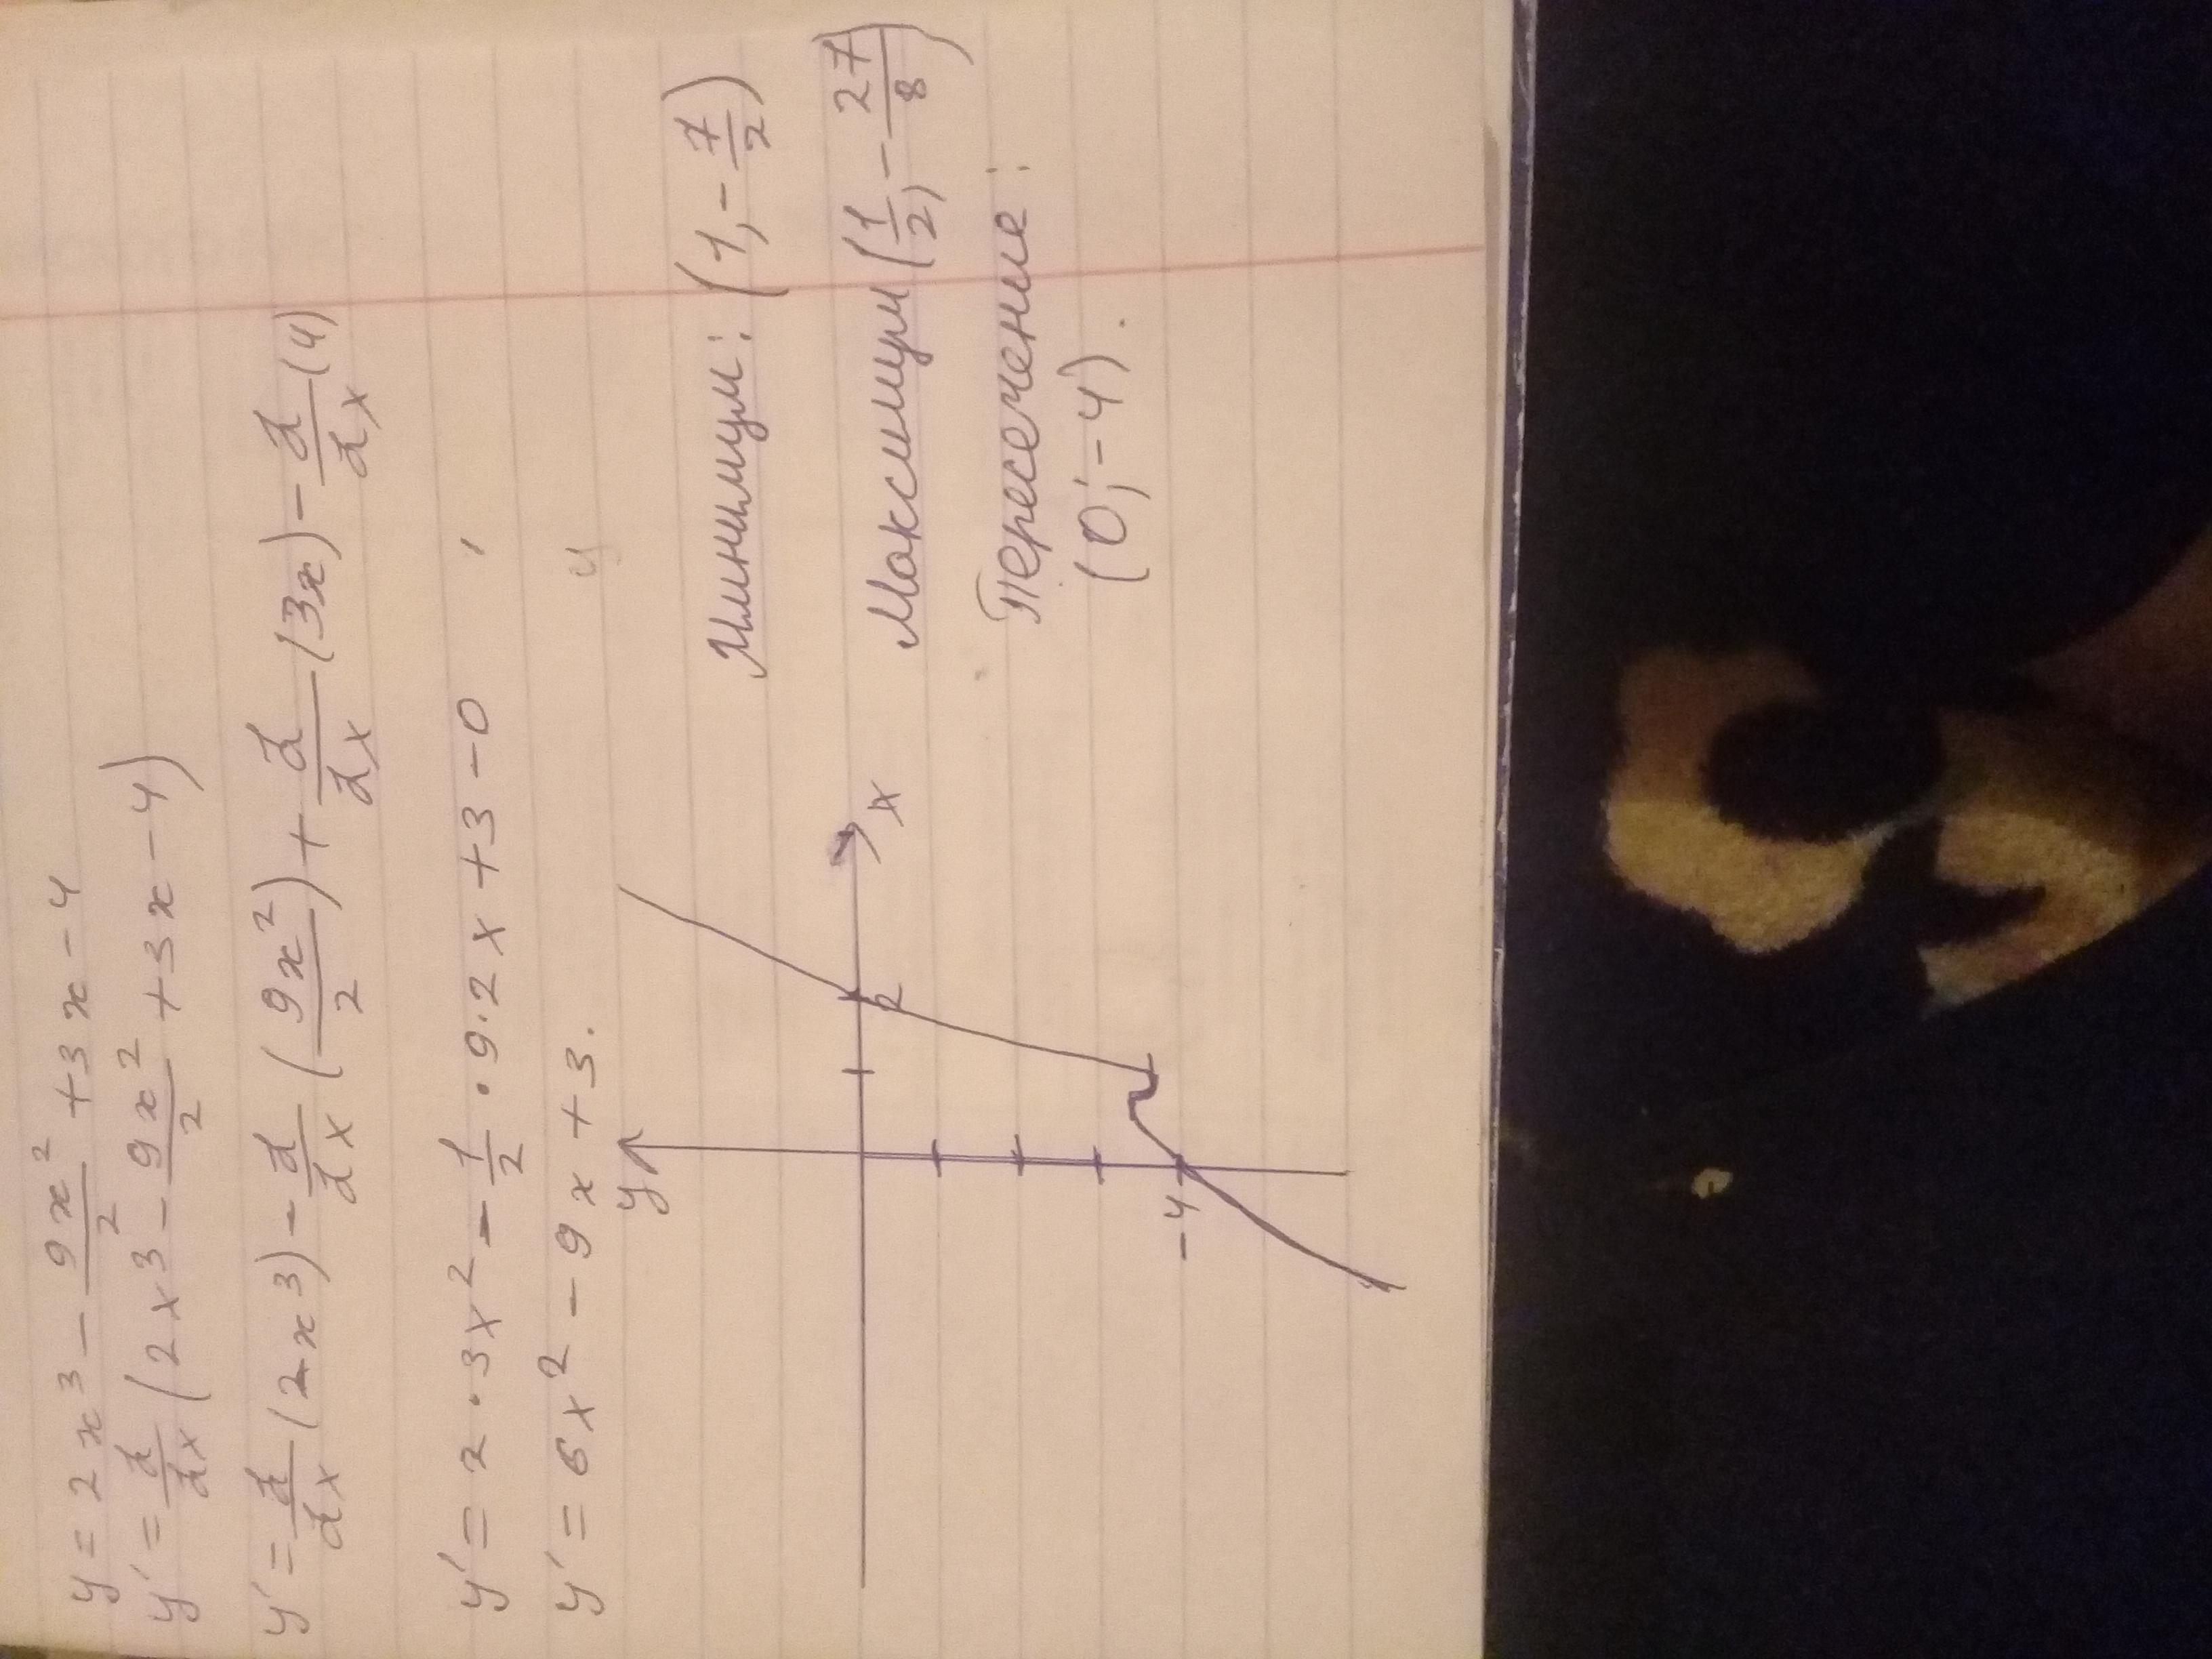 y = 2x³ - 9x²/2 + 3x - 4
y' = d/dx (2x3 - 9x²/2 + 3x - 4)
y' = d/dx (2x3) - d/dx (9x²/2) + d/dx (3x) - d/dx (4)
y' = 2·3x² - 1/2 · 9·2x + 3 - 0
y' = 6x² - 9x + 3.
y
Минимум: (1, -7/2)
x
Максимум (1/2, -27/8)
2
Пересечение:
(0; -4).
-4